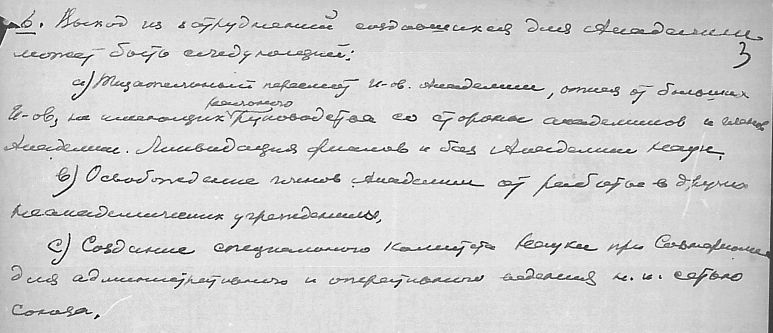 6. Выход из затруднений создавшихся для Академии
может быть следующей:
3
а) Тщательный пересмотр И-ов Академии, отказ от больших
реального
И-ов, не имеющих руководства со стороны академиков и членов
Академии. Ликвидация филиалов и баз Академии Наук.
в) Освобождение членов Академии от работы в других
неакадемических учреждениях.
с) Создание специального комитета Науки при Совнаркоме
для административного и оперативного ведения н. и. сетью
Союза.